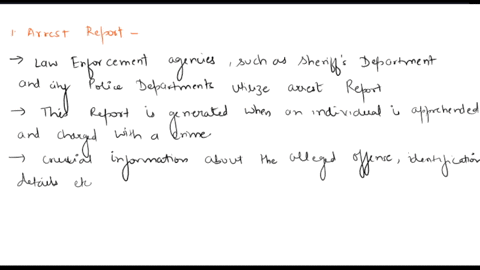 1. Arrest Report -
→ Law Enforcement agencies, such as Sheriff's Department
and city Police Departments utilize arrest Report
→ This Report is generated when an individual is apprehended
and charged with a crime
→ crucial information about the alleged offense, identification
details etc